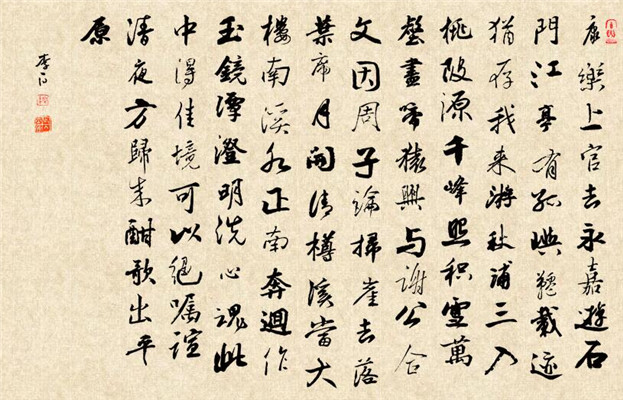 康樂上官去永嘉遊石
門江亭有孤嶼韆載迹
猶存我來游秋浦三入
桃陂源千峰照積雪萬
壑盡啼猿興与謝公合
文因周子論掃崖去落
葉席月開清樽溪當大
樓南溪水正南奔迴作
玉鏡潭澄明洗心魂此
中得佳境可以絕囑諠
清夜方歸來酣歌出平
原
李白